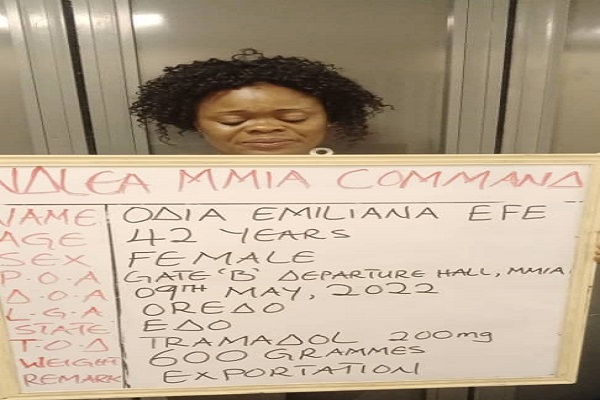 NDLEA MMIA COMMAND
NAME ODIA EMILIANA EFE
AGE 42 YEARS
SEX FEMALE
P.O.A GATE 'B' DEPARTURE HALL, MMIA
D.O.A 09TH MAY, 2022
L.G.A OREDO
STATE EDO
T.O.D TRAMADOL 200mg
WEIGHT 600 GRAMMES
REMARK EXPORTATION